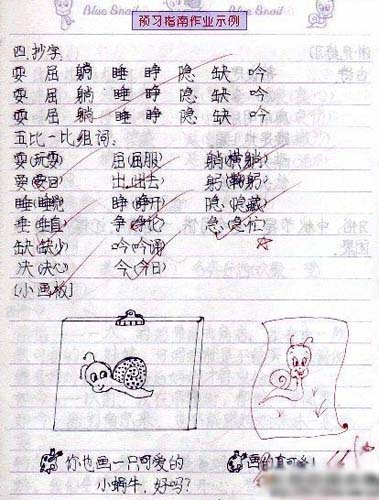 Blue Snail
Blue Snail
预习指南作业示例
四.抄字.
耍 屈 躺 睡 睁 隐 缺 吟
耍 屈 躺 睡 睁 隐 缺 吟
耍 屈 躺 睡 睁 隐 缺 吟
五比一比组词:
耍(玩耍) 屈(屈服) 躺(横躺)
要(要日) 出(出去) 躬(鞠躬)
睡(睡觉) 睁(睁开) 隐(隐藏)
垂(垂直) 争(争论) 急(急忙)
缺(缺少) 吟(吟诵)
决(决心) 今(今日)
[小画板]
你也画一只可爱的
小蜗牛,好吗?
画的真可